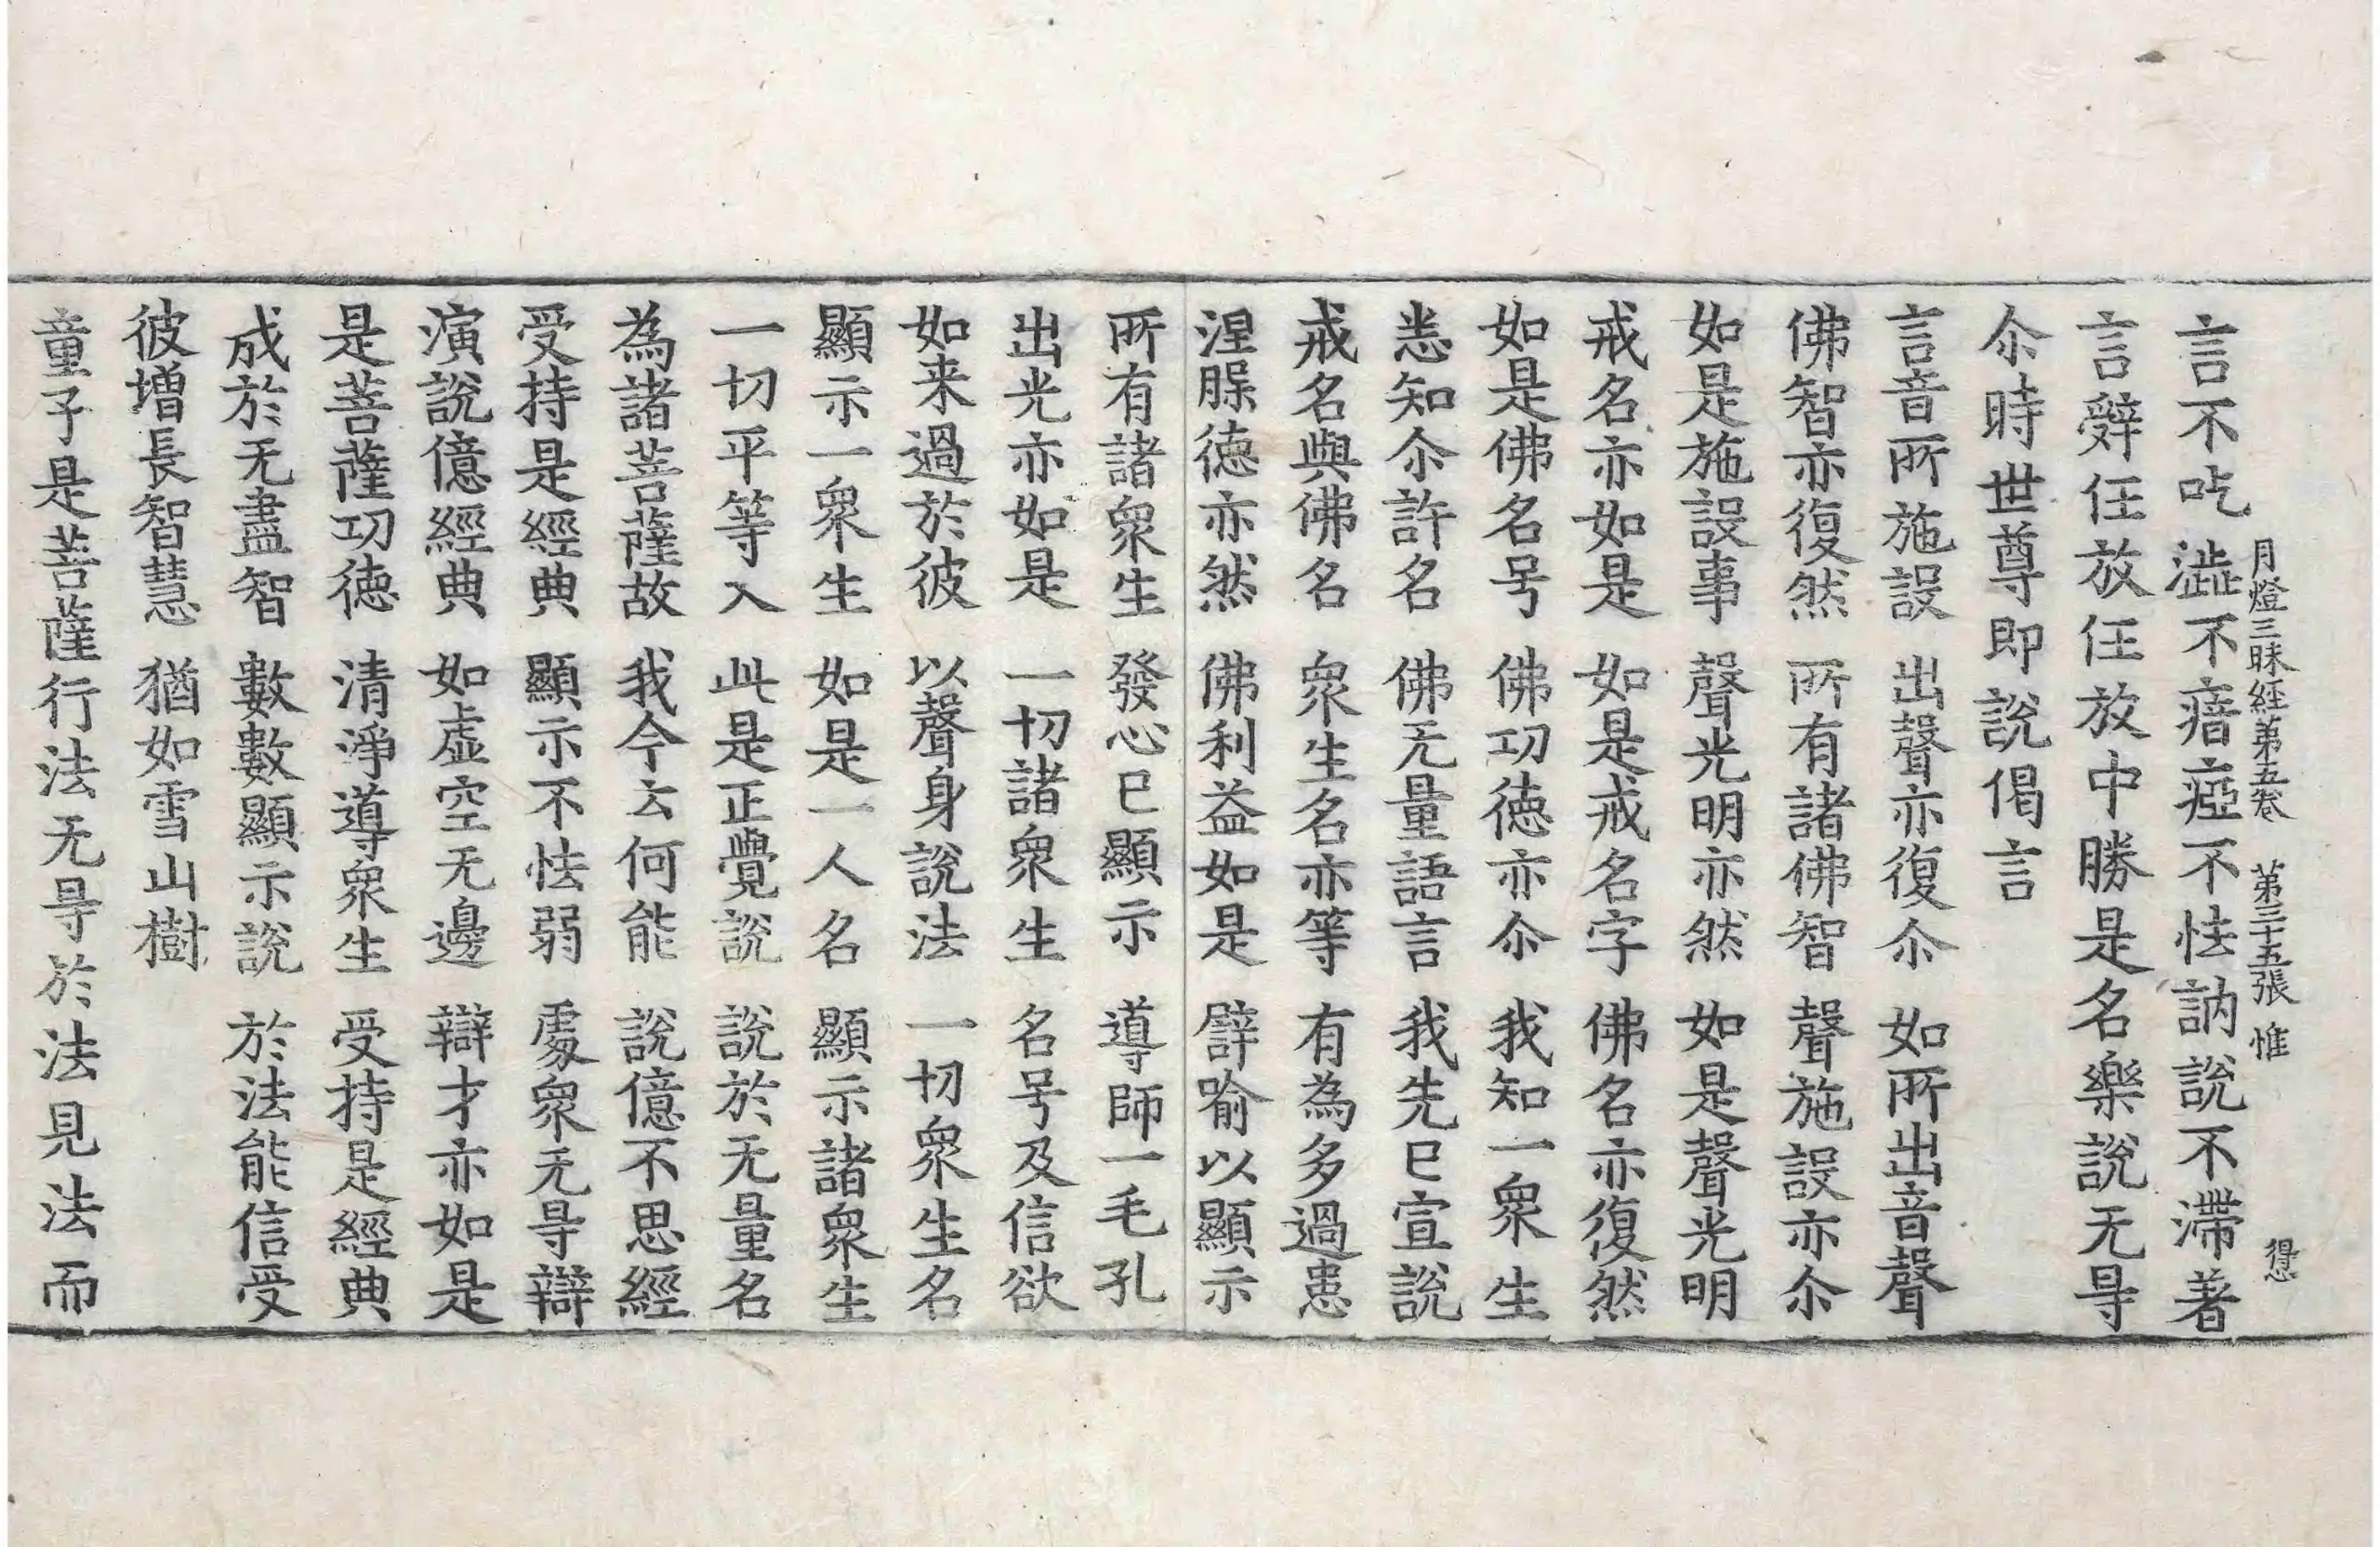 月燈三昧經第五卷　第三十五張　惟
言不吃澁不瘖瘂不怯訥說不滯著
言辤任放任放中勝是名樂說无㝵
尒時世尊即說偈言
言音所施設　出聲亦復尒　如所出音聲
佛智亦復然　所有諸佛智　聲施設亦尒
如是施設事　聲光明亦然　如是聲光明
戒名亦如是　如是戒名字　佛名亦復然
如是佛名号　佛功德亦尒　我知一衆生
悉知尒許名　佛无量語言　我先已宣說
戒名與佛名　衆生名亦等　有為多過患
涅槃德亦然　佛利益如是　譬喻以顯示
所有諸衆生　發心已顯示　導師一毛孔
出光亦如是　一切諸衆生　名号及信欲
如来過於彼　以聲身說法　一切衆生名
顯示一衆生　如是一人名　顯示諸衆生
一切平等入　此是正覺說　說於无量名
為諸菩薩故　我今云何能　說億不思經
受持是經典　顯示不怯弱　處衆无㝵辯
演說億經典　如虛空无邊　辯才亦如是
是菩薩功德　清淨導衆生　受持是經典
成於无盡智　數數顯示說　於法能信受
彼增長智慧　猶如雪山樹
童子是菩薩行法无㝵於法見法而